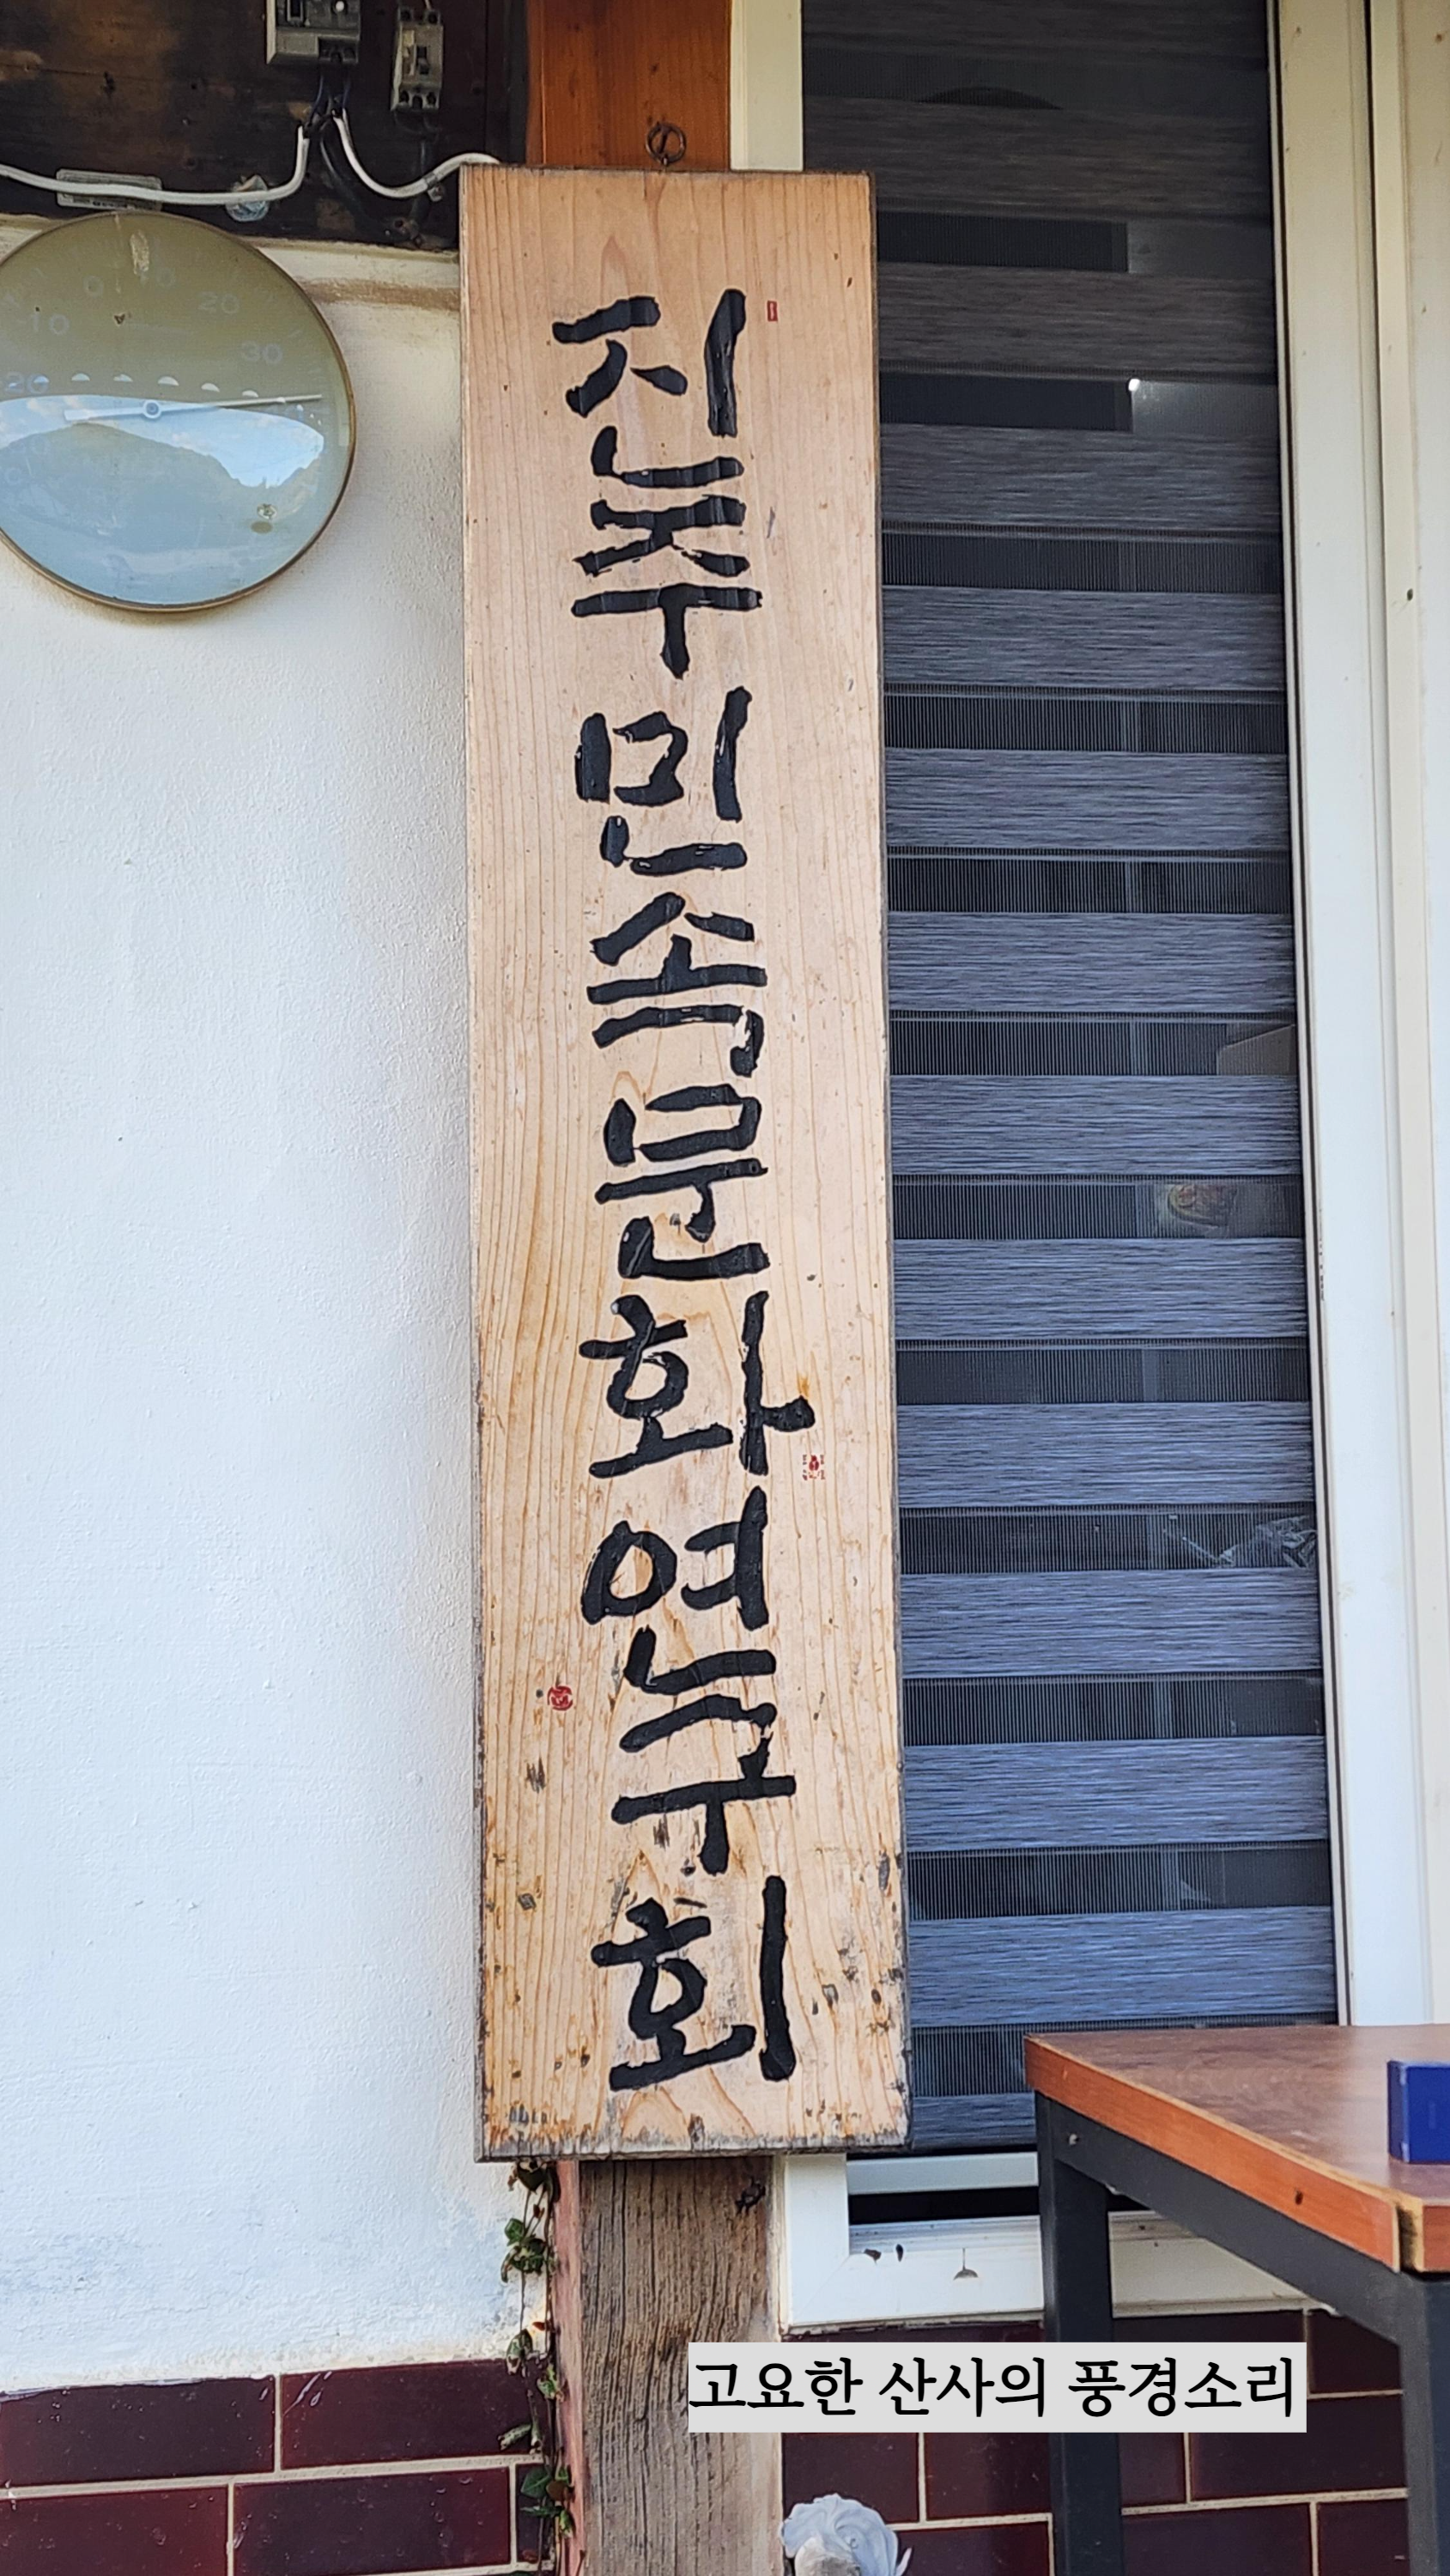 진주 민속문화연구회
-10
0
10
20
30
고요한 산사의 풍경소리